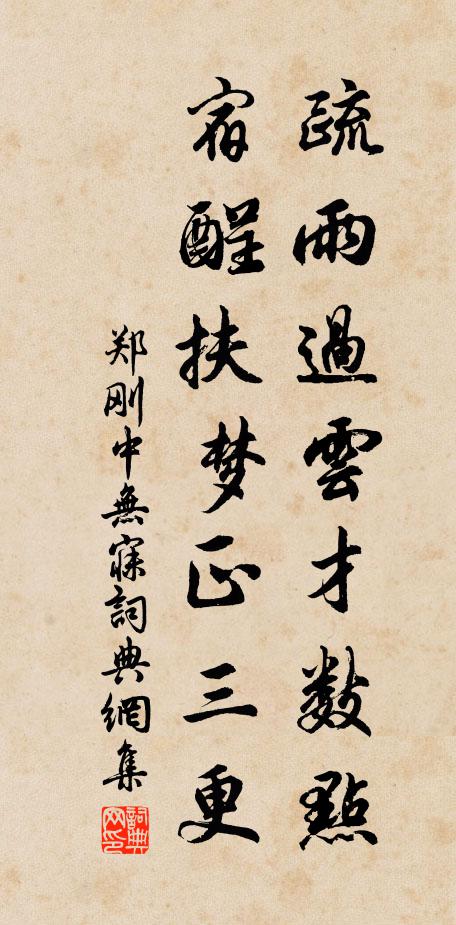 疏雨過雲才數點
宿酲扶梦正三更
郑刚中無寐詞典網集
詞典网印